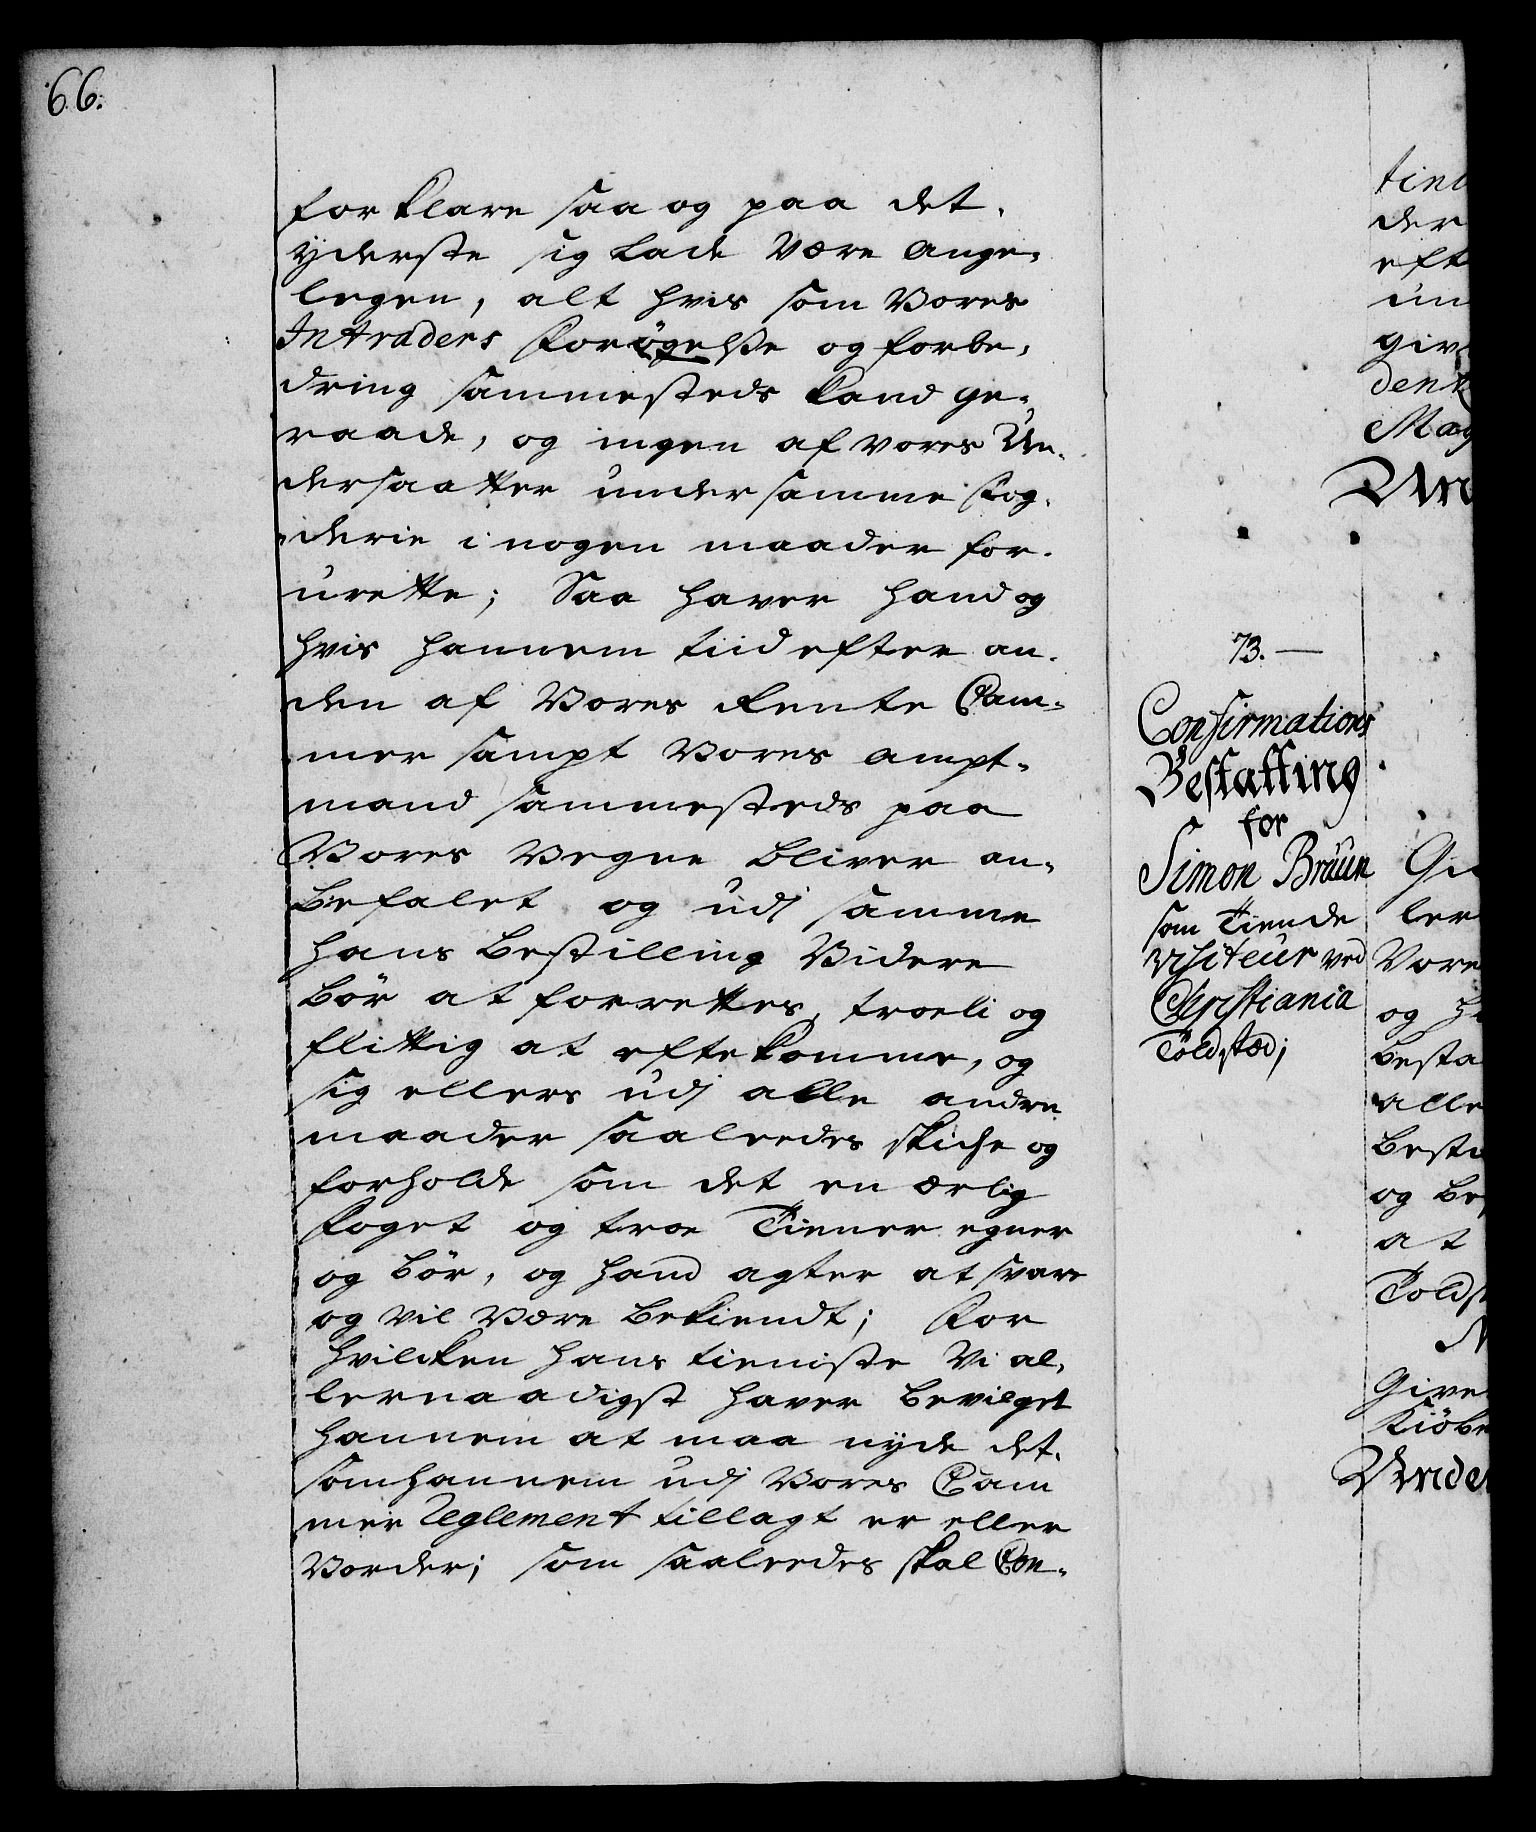 66.
forklare saa og paa det
yderste sig lade Være Ange-
legen, alt hvis som Vores
Intraders Forögelse og forbe-
dring sammesteds kand ge-
raade, og ingen af vores Un-
dersaatter under samme Fog-
derie i nogen maader for-
urette; Saa haver hand og
hvis hannem tiid efter an-
den af Vores Rente Cam-
mer sampt Vores Ampt-
mand sammesteds paa
Vores Vegne bliver an-
befalet og udj samme
hans bestilling Videre
bör at forrettes, troeli og
flittig at eftekomme, og
sig ellers udj alle andre
maader saaleedes skiche og
forholde som det en ærlig
Foget og troe Tiener egner
og bör, og hand agter at svare
og vil være bekiendt; For
hvilcken hans tieniste Vi al-
lernaadigst haver bevilget
hannem at maa nyde det
som hannem udj Vores Cam
mer Reglement tillagt er eller
Vorder; som saaleedes skal Con-
73.
Confirmations
Bestalling
for
Simon Bruun
som Tiende
Visiteur ved
Christiania
Toldsted;
tien
der
eft
un
giv
dend
May
Un
Gi
ler
Vore
og h
besta
alle
besta
og be
at
Tolds
N
Give
Kiöbe
Under